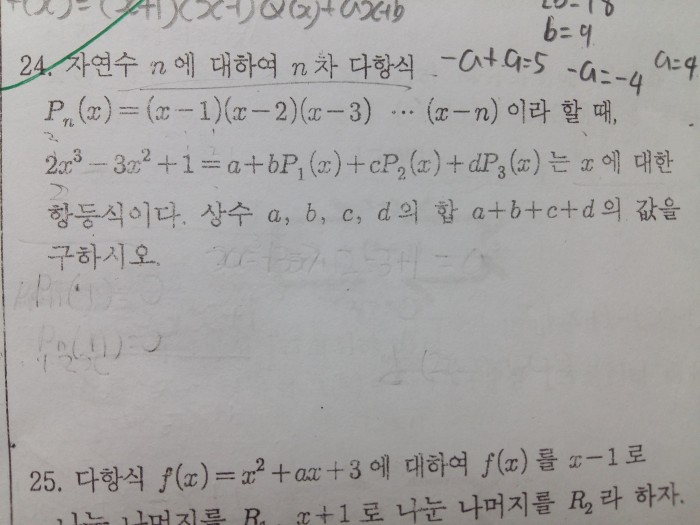 f(x)=(x+1)(x-1)Q(x)+ax+b
b=9
24. 자연수 n에 대하여 n차 다항식 -a+9=5 -a=-4 a=4
Pₙ(x)=(x-1)(x-2)(x-3) ⋯ (x-n)이라 할 때,
2x³-3x²+1=a+bP₁(x)+cP₂(x)+dP₃(x)는 x에 대한
항등식이다. 상수 a, b, c, d의 합 a+b+c+d의 값을
구하시오.
25. 다항식 f(x)=x²+ax+3에 대하여 f(x)를 x-1로
나눈 나머지를 R₁, x+1로 나눈 나머지를 R₂라 하자.